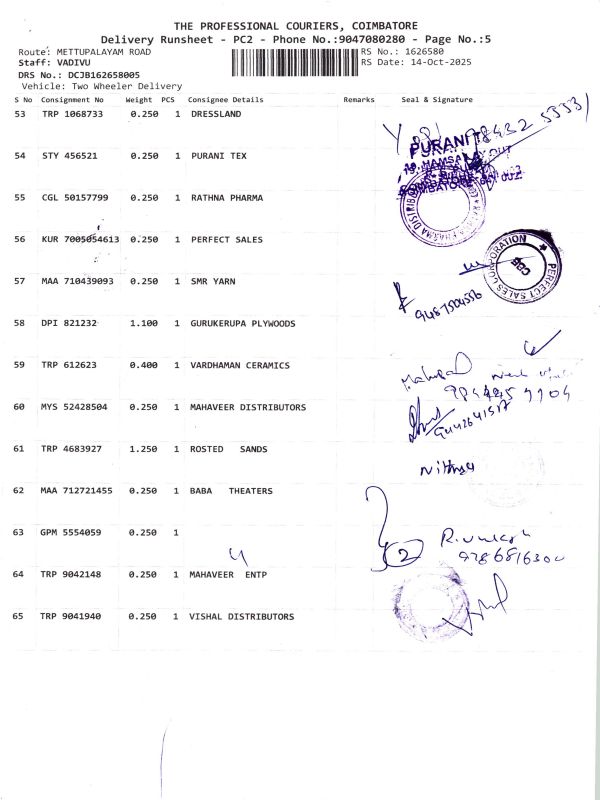 THE PROFESSIONAL COURIERS, COIMBATORE
Delivery Runsheet - PC2 - Phone No.:9047080280 - Page No.:5
Route: METTUPALAYAM ROAD RS No.: 1626580
Staff: VADIVU RS Date: 14-Oct-2025
DRS No.: DCJB162658005
Vehicle: Two Wheeler Delivery
S No Consignment No Weight PCS Consignee Details Remarks Seal & Signature
53 TRP 1068733 0.250 1 DRESSLAND
54 STY 456521 0.250 1 PURANI TEX
PURANI T
55 CGL 50157799 0.250 1 RATHNA PHARMA
56 KUR 7005054613 0.250 1 PERFECT SALES
PERFECT SALES CORPORATION
CBE
57 MAA 710439093 0.250 1 SMR YARN
58 DPI 821232 1.100 1 GURUKERUPA PLYWOODS
59 TRP 612623 0.400 1 VARDHAMAN CERAMICS
60 MYS 52428504 0.250 1 MAHAVEER DISTRIBUTORS
61 TRP 4683927 1.250 1 ROSTED SANDS
62 MAA 712721455 0.250 1 BABA THEATERS
63 GPM 5554059 0.250 1
2
64 TRP 9042148 0.250 1 MAHAVEER ENTP
65 TRP 9041940 0.250 1 VISHAL DISTRIBUTORS